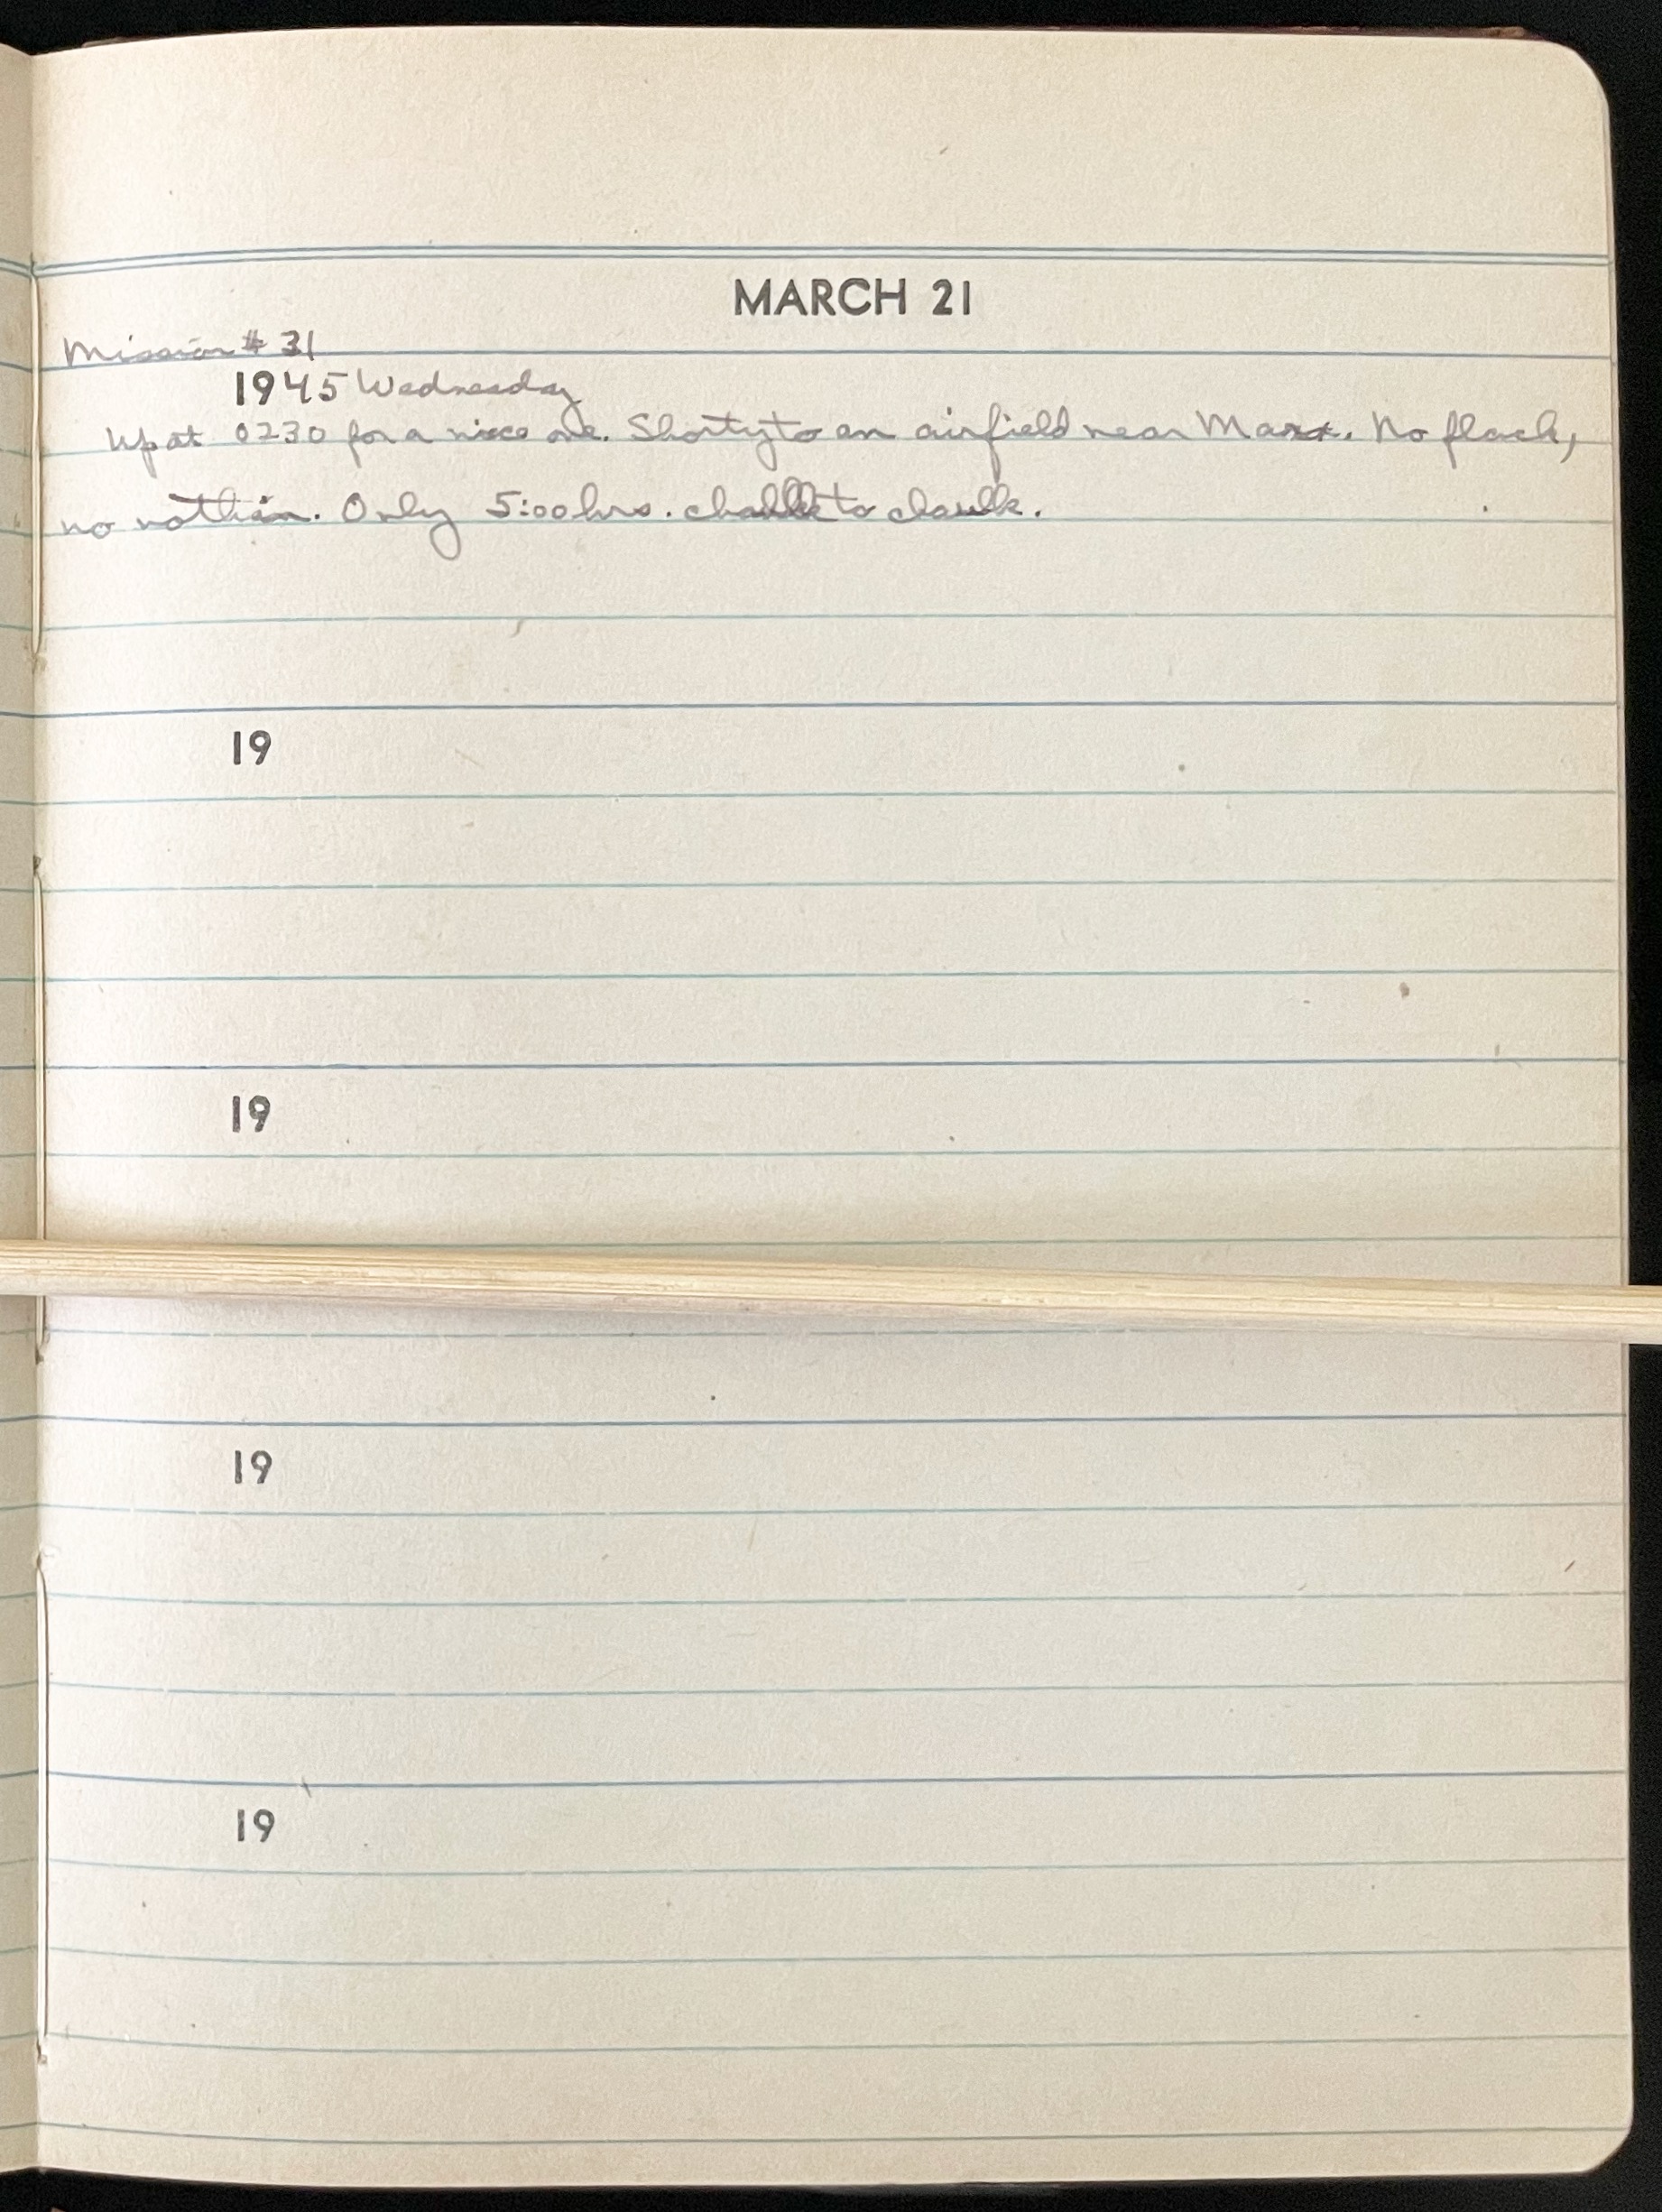 MARCH 21
Mission # 31
1945 Wednesday
Up at 0230 for a nice one. Shorty to an airfield near No flack,
no nothin. Only 5:00 hrs. chalk to chalk.
19
19
19
19